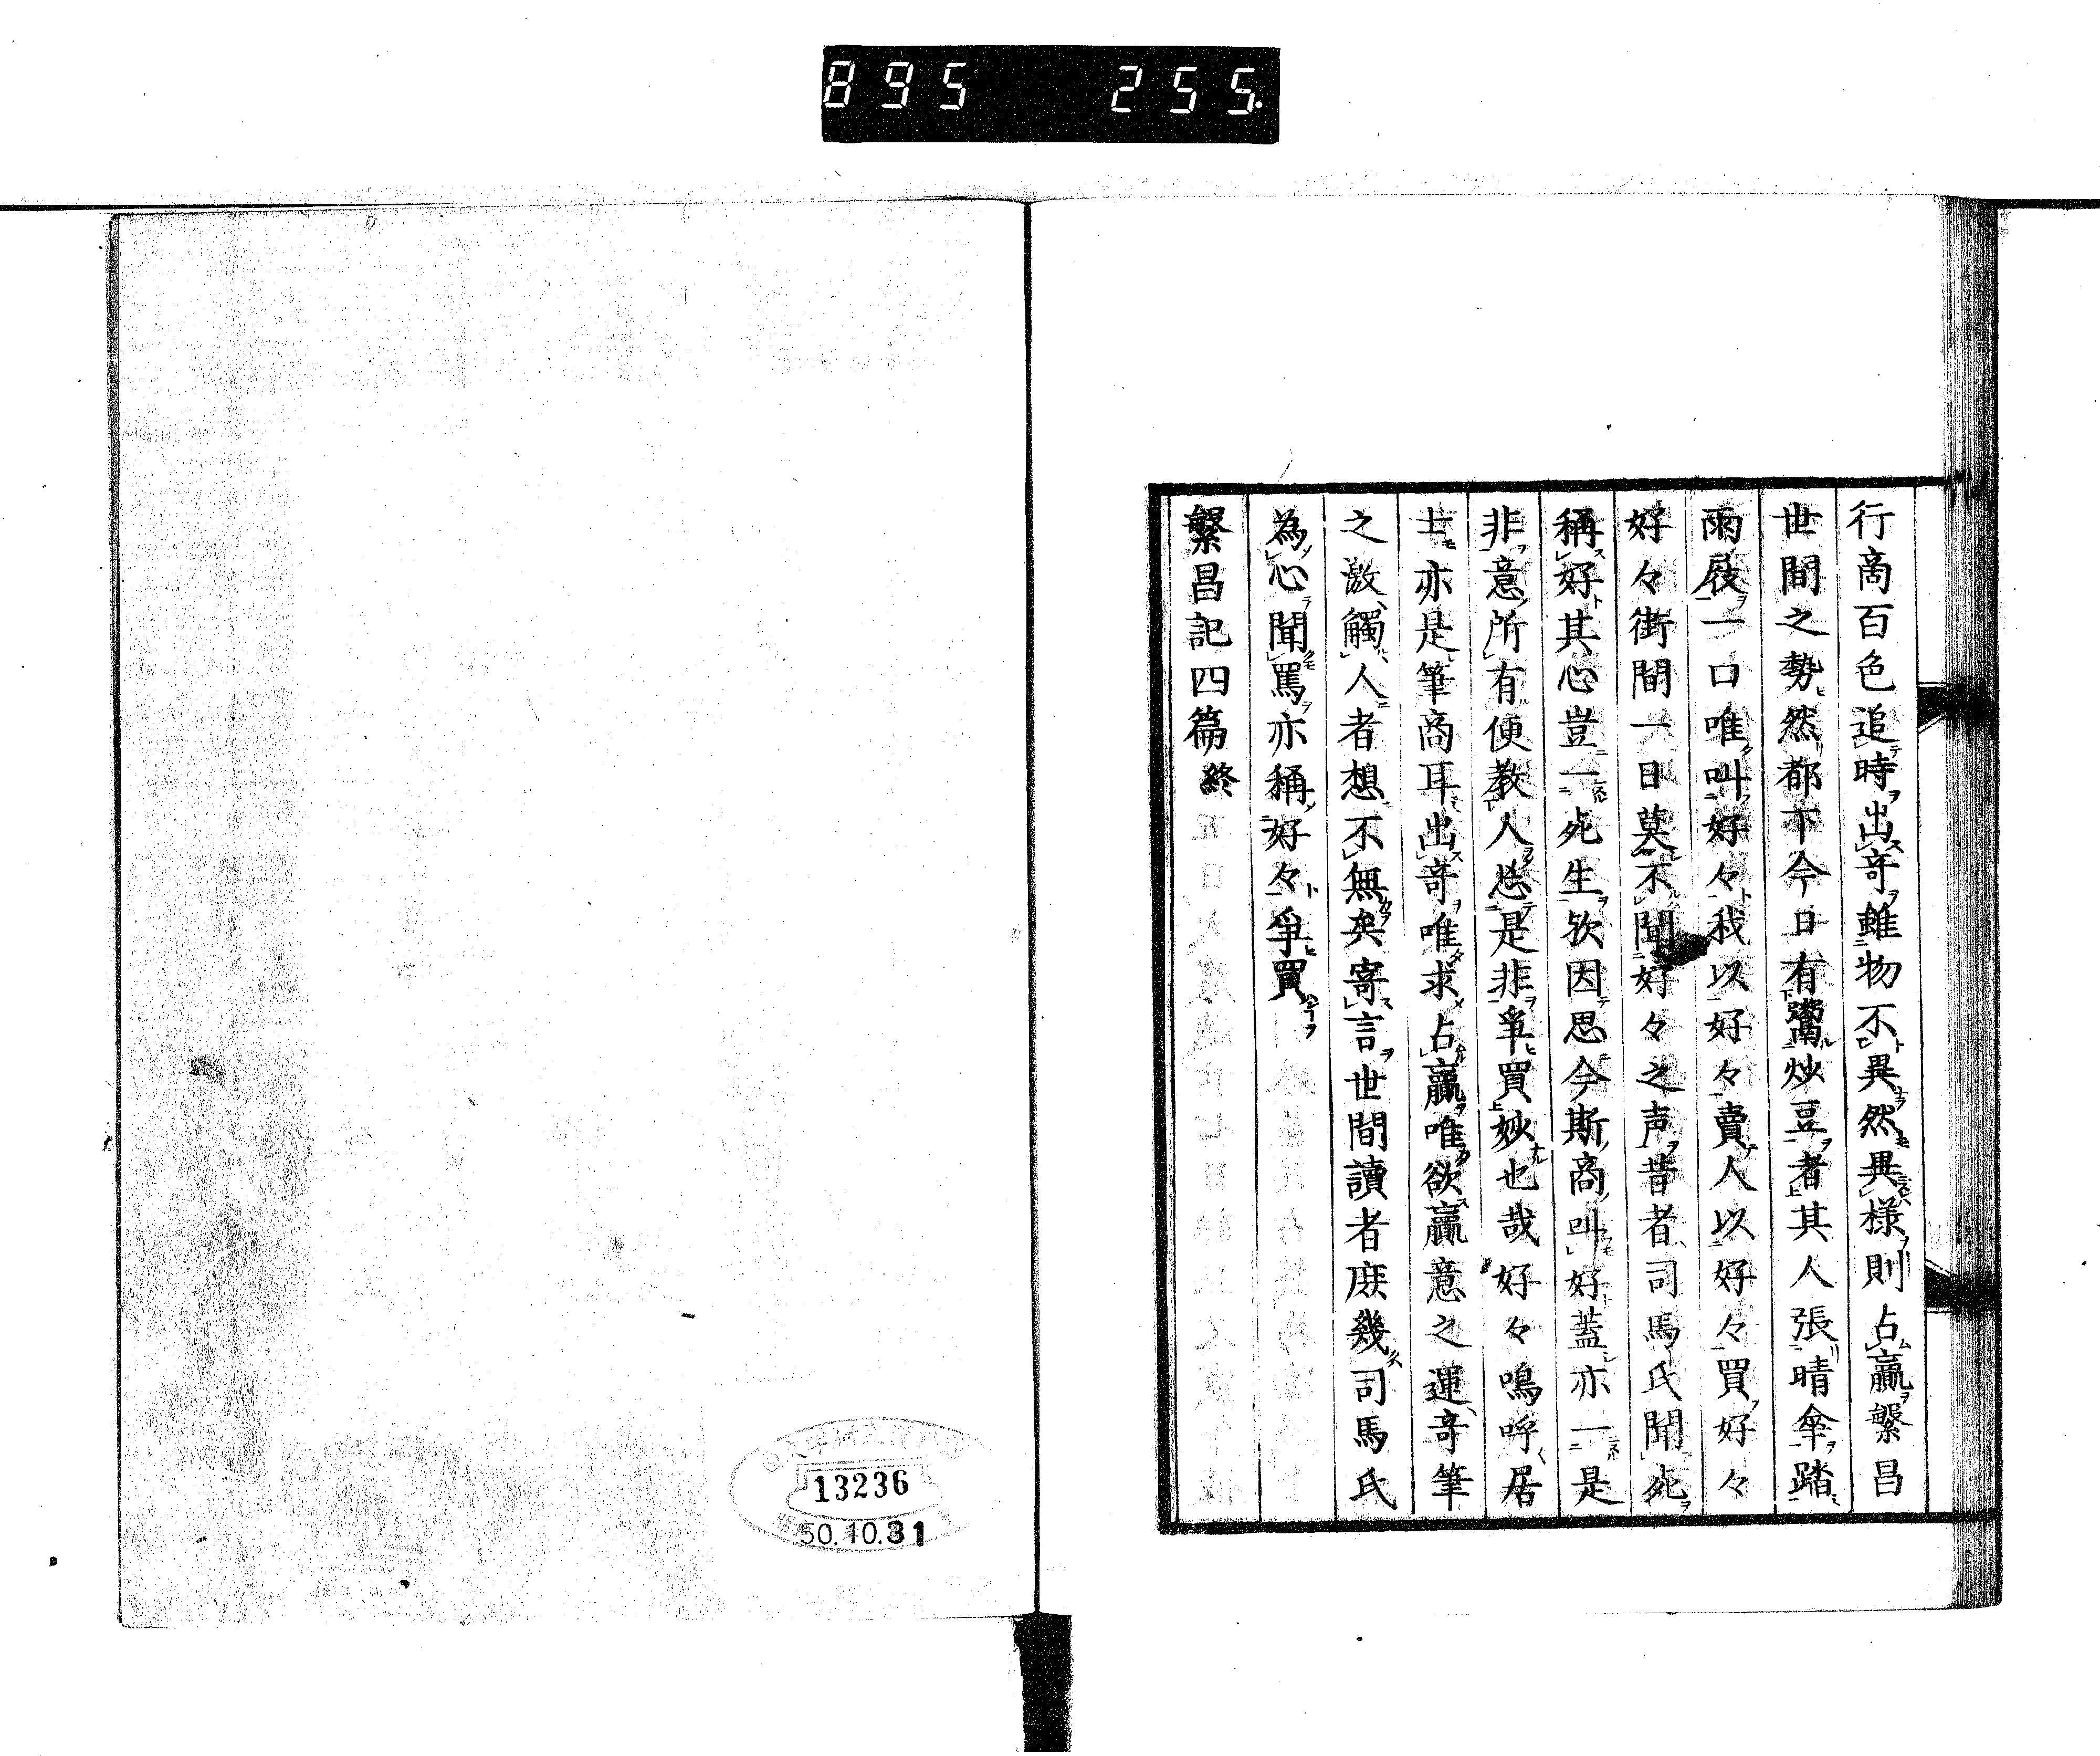 895 255.
行商百色追時出奇雖物不異然異様則占贏繁昌
世間之勢然都下今日有鬻炒豆者其人張晴傘踏
雨屐一口唯叫好々我以好々賣人以好々買好々
好々街間一日莫不聞好々之声昔者司馬氏聞死
稱好其心豈一死生欤因思今斯商叫好蓋亦一是
非意所有便教人忘是非爭買妙也哉好々嗚呼居
士亦是筆商耳出奇唯求占贏唯欲贏意之運奇筆
之激觸人者想不無矣寄言世間讀者庶幾司馬氏
為心聞罵亦稱好々爭買
繁昌記四篇終
13236
50.10.31